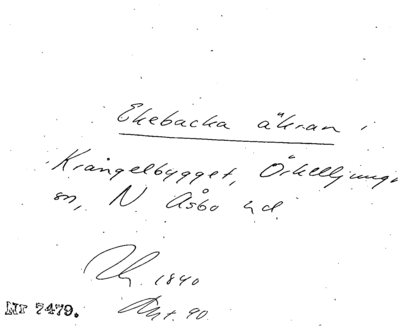 Ekebacka åkran i
Krångelbygget, Örkelljungs
sn, N. Åsbo hd.
1840
Nr 7479.
90.